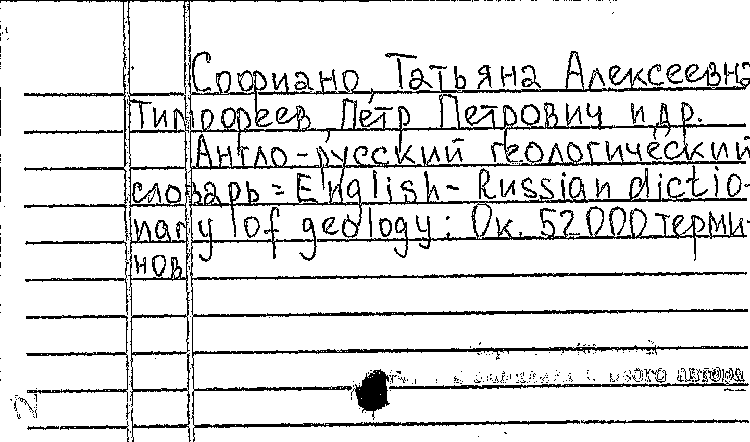 Софиано, Татьяна Алексеевна
Тимофеев, Пётр Петрович и др.
Англо-русский геологический
словарь = English-Russian dictio-
nary of geology: Ок. 52000 терми-
нов
автора